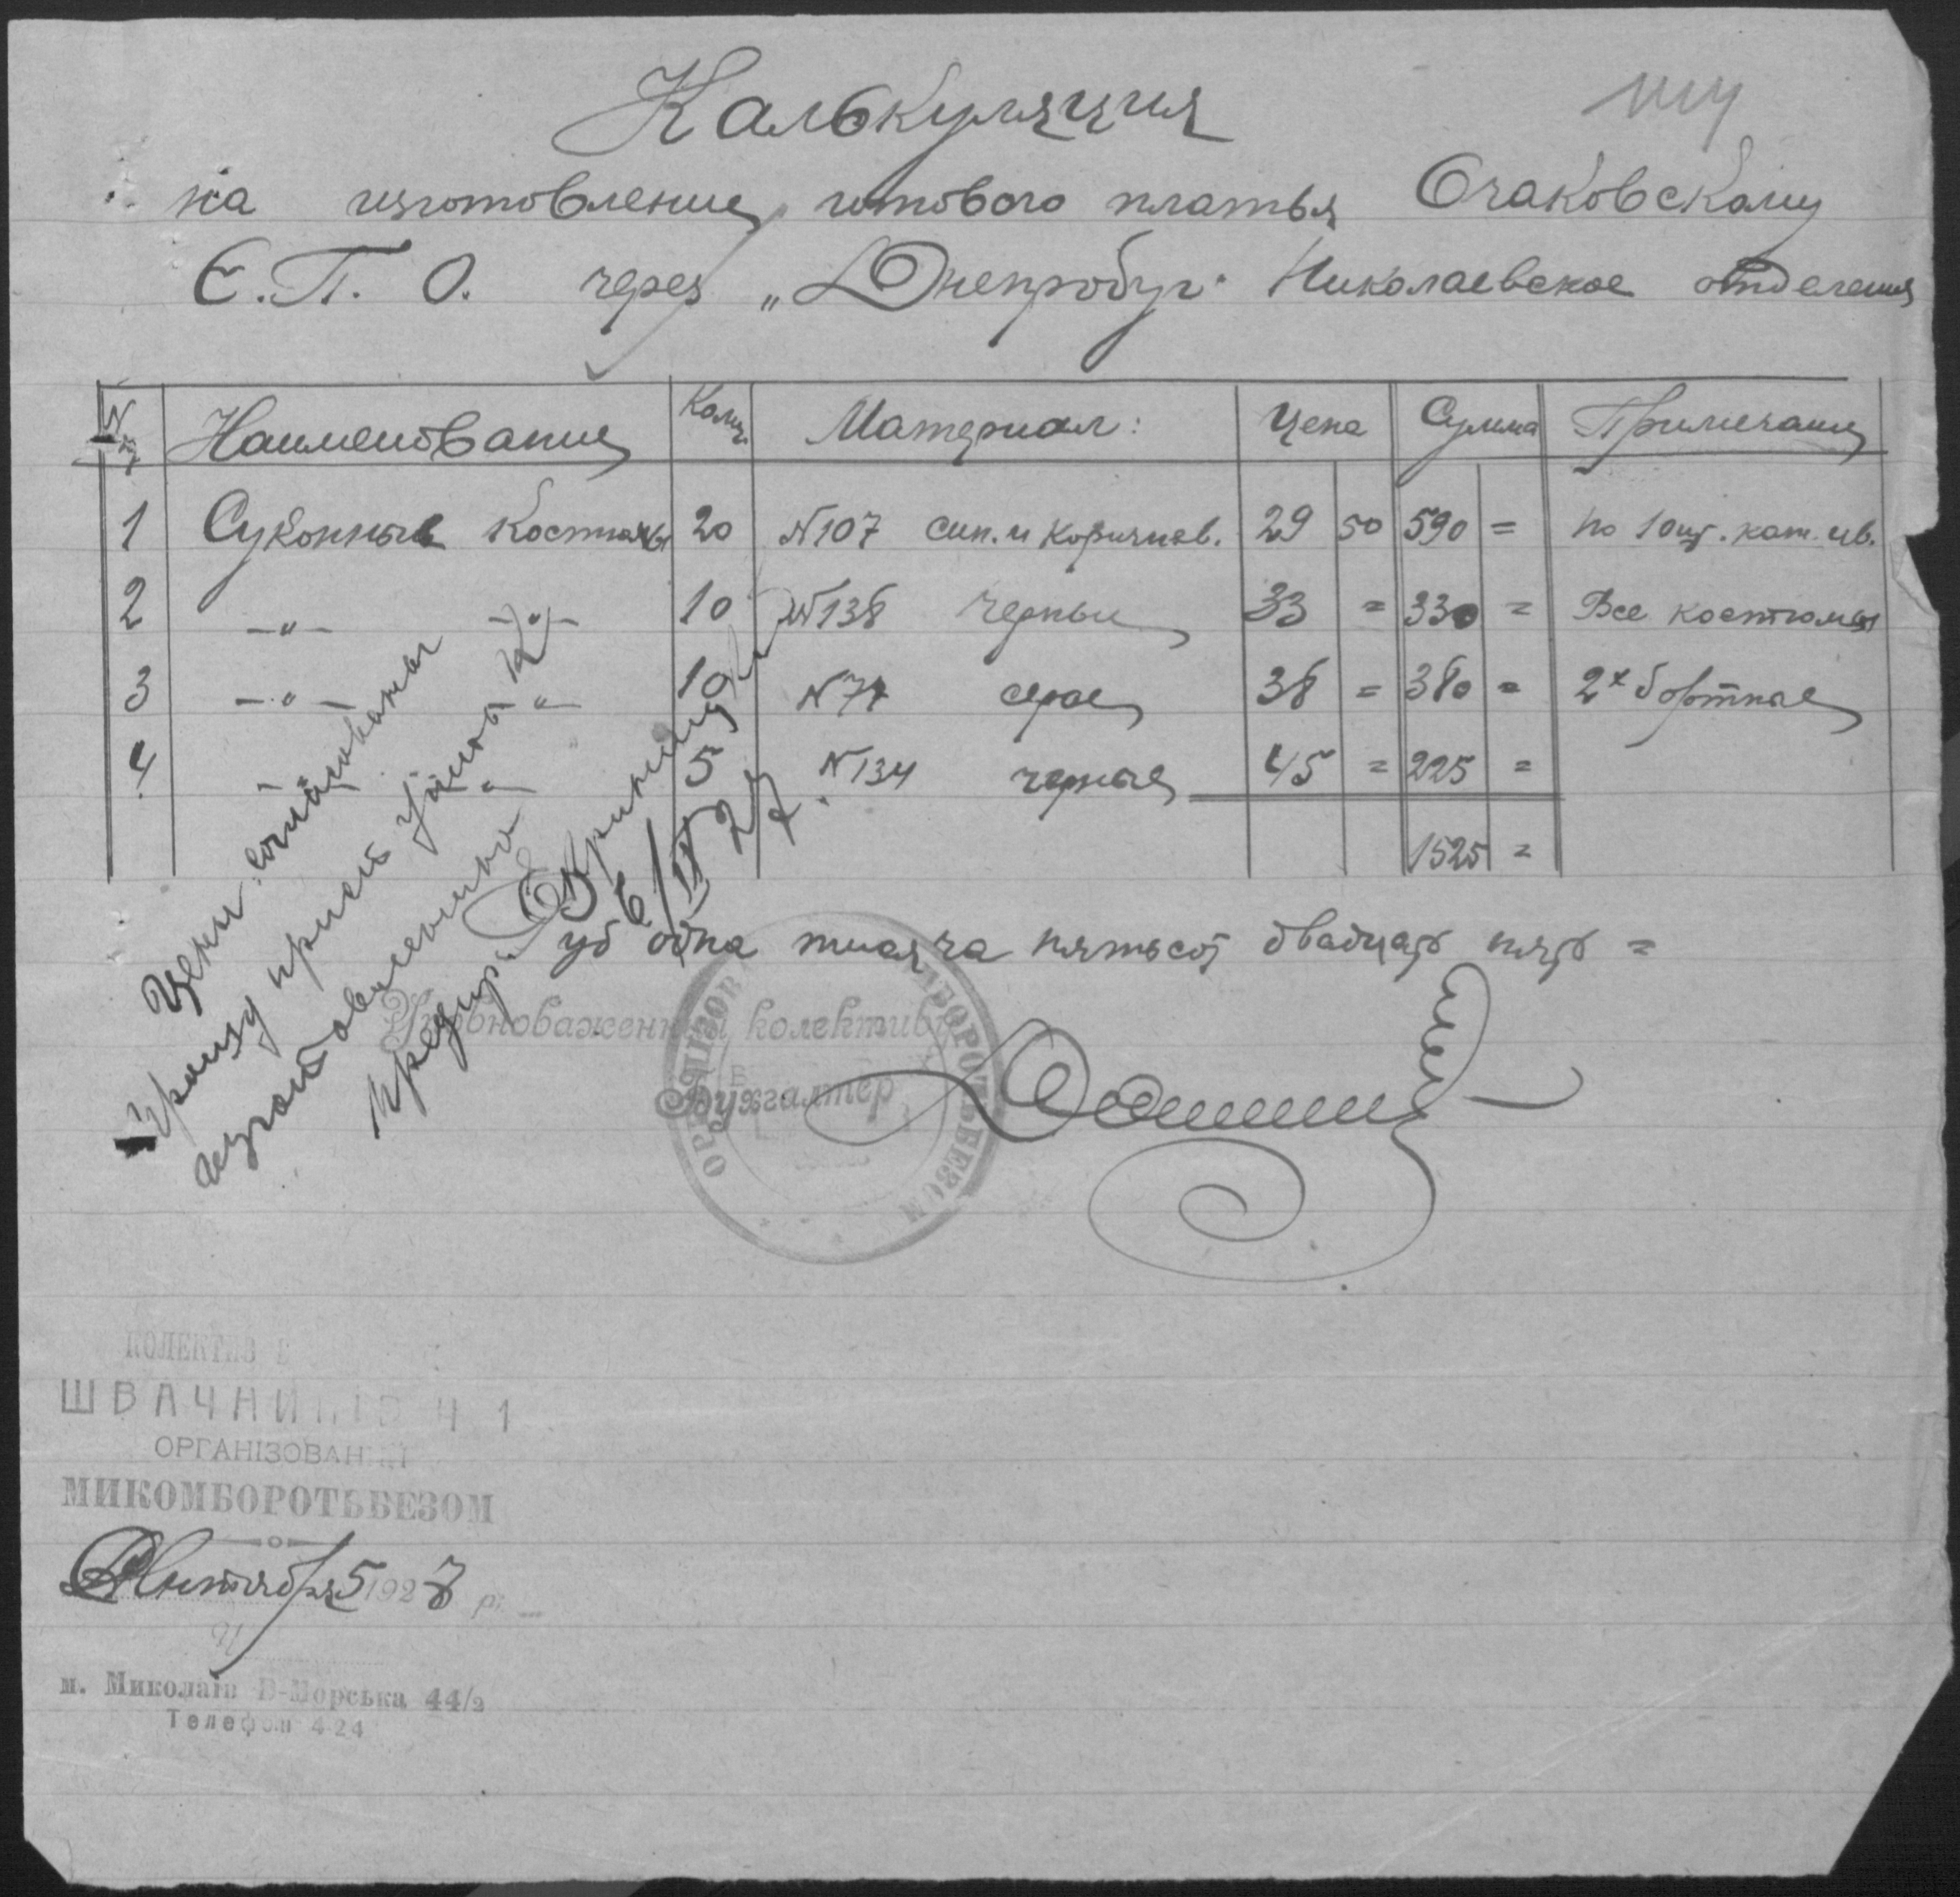 Калькуляция
на изготовление готового платья Очаковскому
Е.П.О. через „Днепробуг" Николаевское отделения
№ Наименование Колич. Материал: Цена Сумма Примечание
1 Суконные костюмы 20 №107 син. и коричнев. 29 50 590 = по 10 шт. каж. цв.
2 —"— —"— 10 №138 черные 33 = 330 = Все костюмы
3 —"— —"— 10 №74 серые 38 = 380 = 2х бортные
4 " " 5 №134 черные 45 = 225 =
1525 =
уб одна тисяча пятьсот двадцать пять =
Цены
6/IX 27
Уповноважений колективу
Бухгалтер
КОЛЕКТИВ
ШВАЧНИКІВ Ч 1
ОРГАНІЗОВАНИЙ
МИКОМБОРОТЬБЕЗОМ
Сентября 5 1927 р.
м. Миколаїв В-Морська 44/2
Телефон 4-24